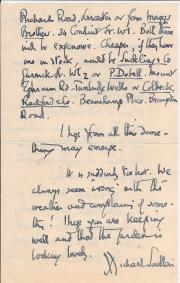 Richmond Road, Leicester or from Maggs
Brothers. 34 Conduit St. W1. Both these
will be expensive. Cheaper, if they have
one in stock, would be Suckling & Co
Garrick St. WC2 or P. Mount
Ephraim Rd. Tunbridge Wells or
Beauchamp Place. Brompton
Road.
I hope from all this some-
thing may emerge.
It is suddenly too hot. We
always seem wrong with the
weather and complaining of some-
thing! I hope you are keeping
well and that the garden is
looking lovely.
Michael Sadleir